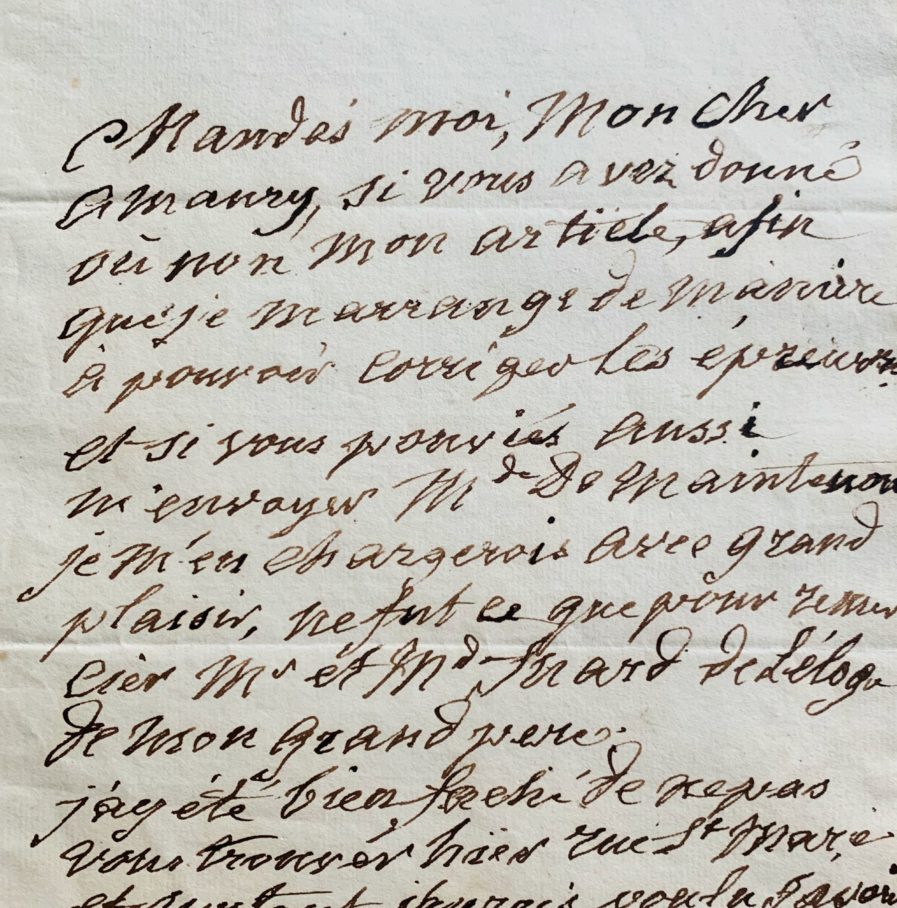 Mandés moi, Mon Cher
amaury, si vous avez donné
où non mon article, afin
que je marrange de manière
à pouvoir corriger les épreuves
et si vous pouviés aussi
m'envoyer Mde De Maintenon
je m'en chargerois avec grand
plaisir, ne fut ce que pour remer
cier Mr et Md Suard de L'éloge
de mon grand pere.
j'ay été bien faché de ne pas
vous trouver hier rue St Marc,
et j'aurois voulu savoir